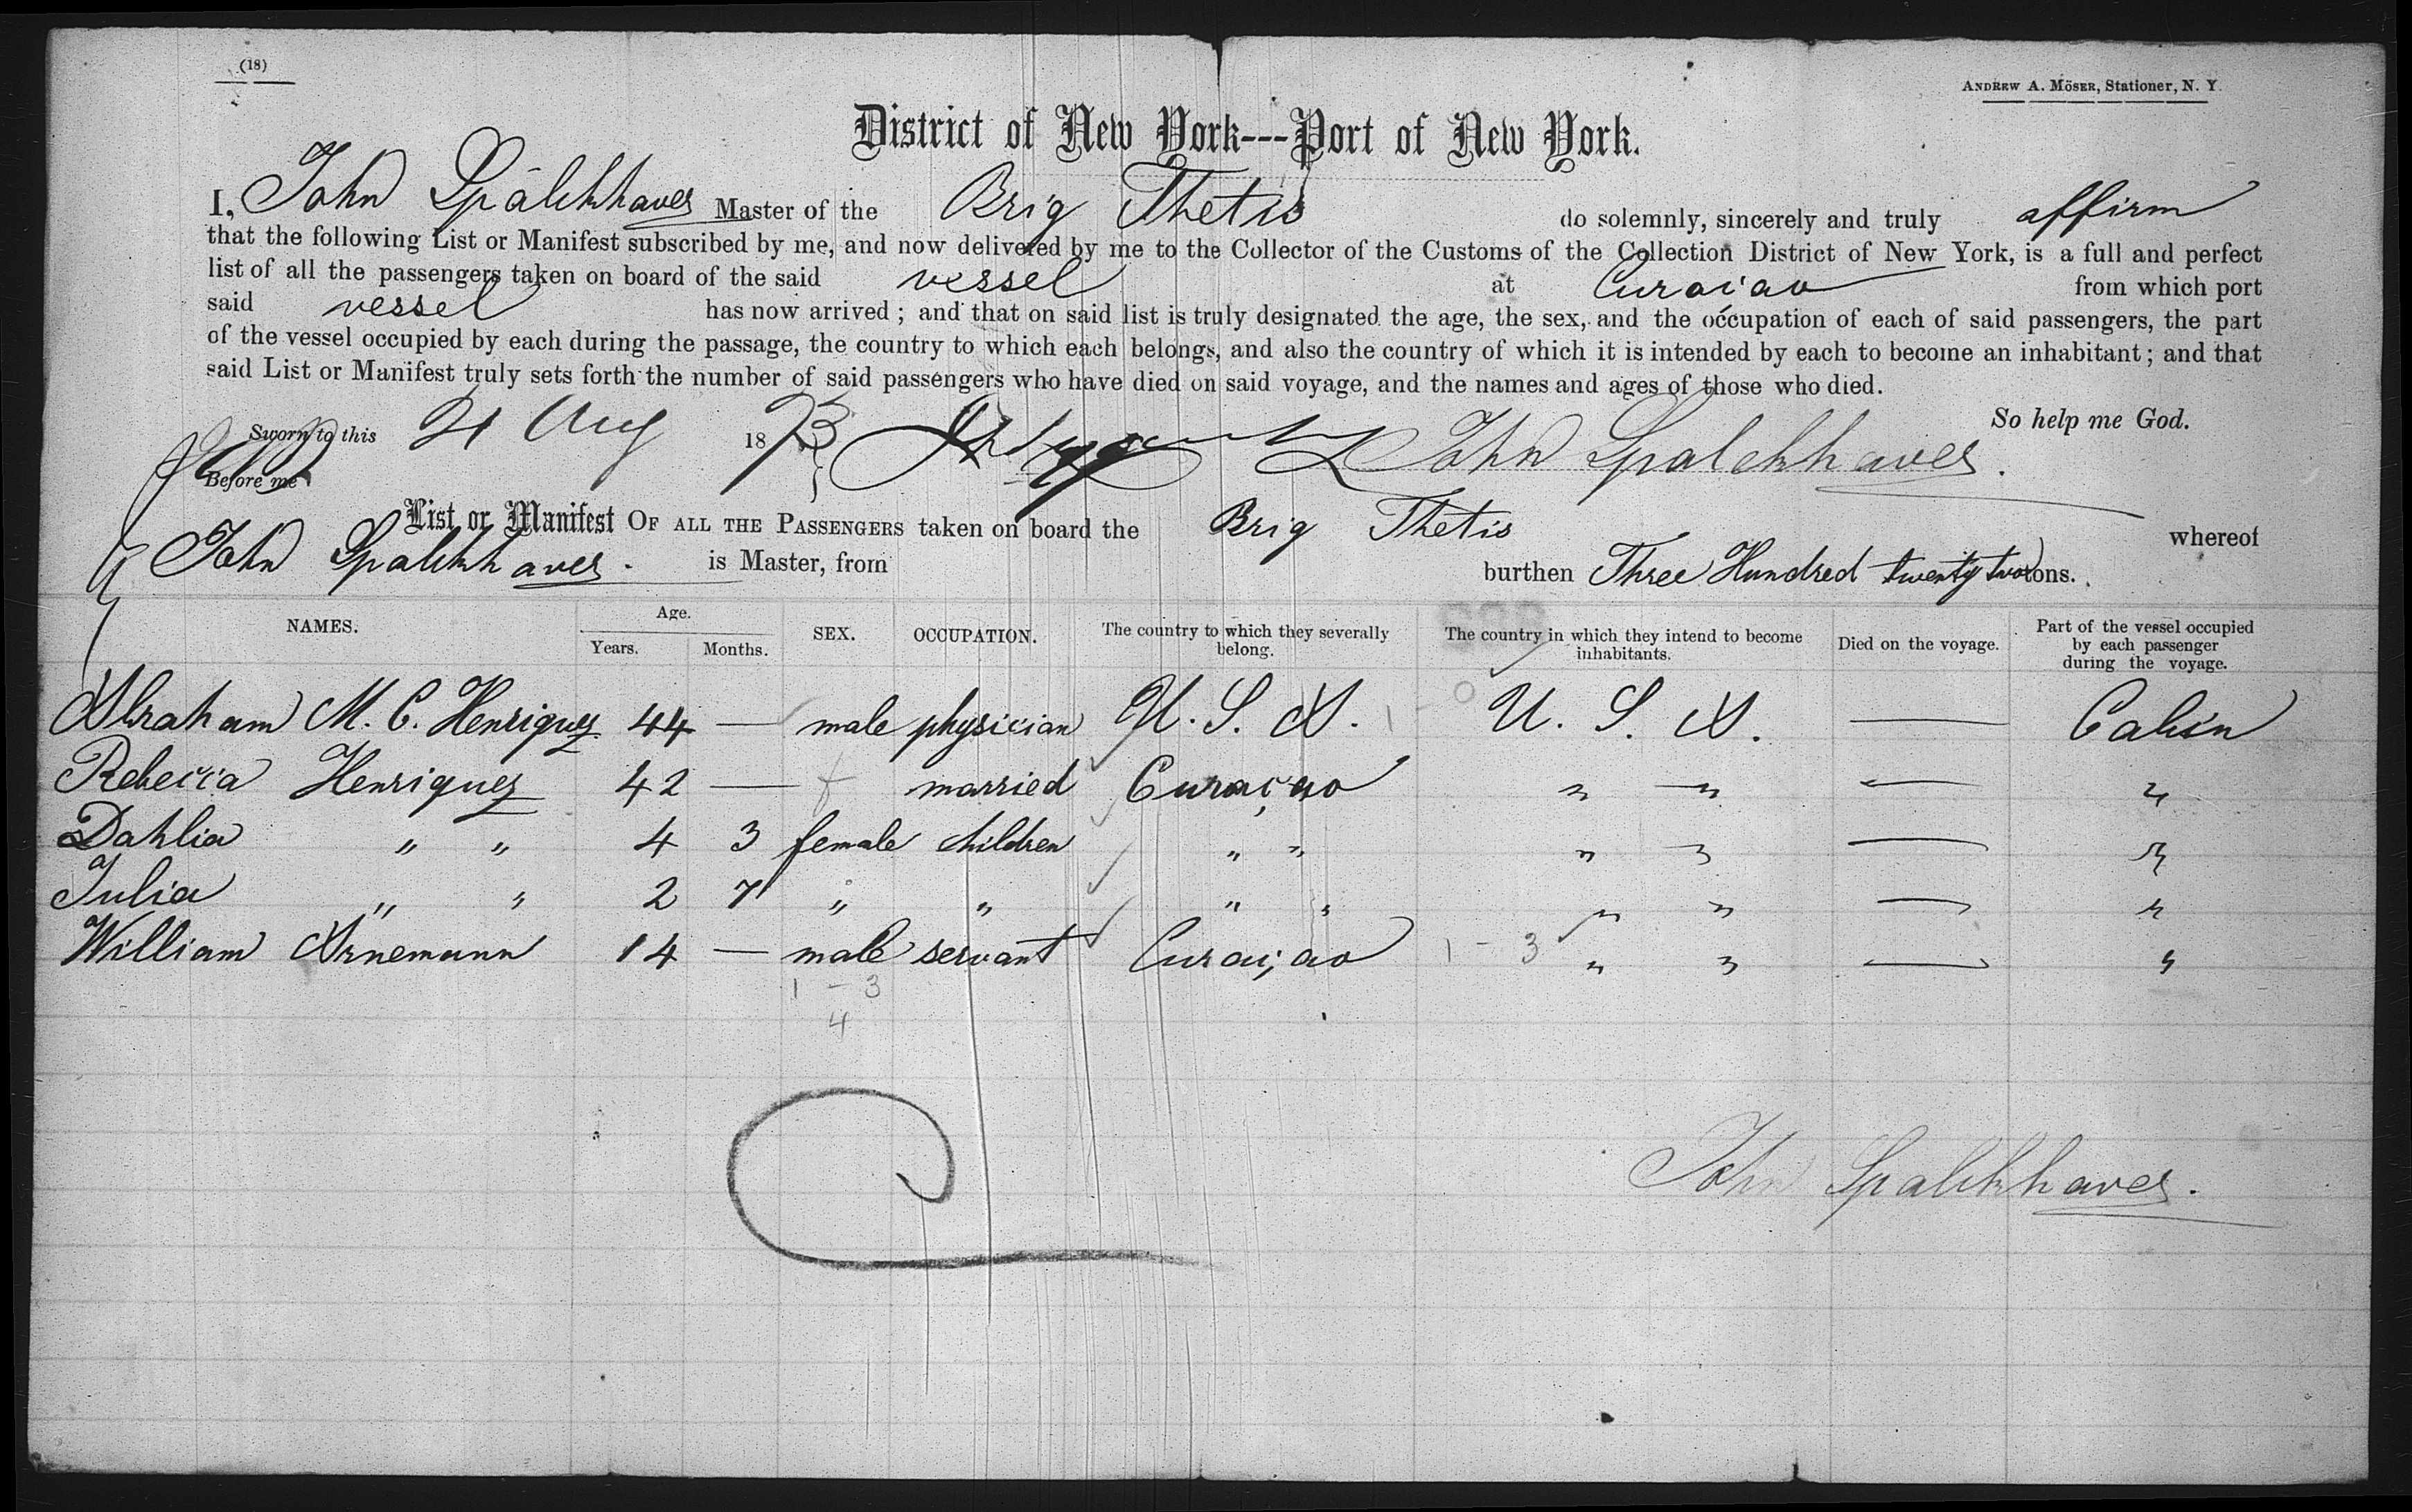 (18)
ANDREW A. MÖSER, Stationer, N. Y.
District of New York---Port of New York.
I, John Spalckhaver Master of the Brig Thetis do solemnly, sincerely and truly affirm
that the following List or Manifest subscribed by me, and now delivered by me to the Collector of the Customs of the Collection District of New York, is a full and perfect
list of all the passengers taken on board of the said vessel at Curaçao from which port
said vessel has now arrived ; and that on said list is truly designated the age, the sex, and the occupation of each of said passengers, the part
of the vessel occupied by each during the passage, the country to which each belongs, and also the country of which it is intended by each to become an inhabitant ; and that
said List or Manifest truly sets forth the number of said passengers who have died on said voyage, and the names and ages of those who died.
So help me God.
Sworn to this 21 Aug 1873 John Spalckhaver.
Before me
List or Manifest OF ALL THE PASSENGERS taken on board the Brig Thetis whereof
John Spalckhaver. is Master, from burthen Three Hundred twenty two tons.
NAMES. Age. Years. Months. SEX. OCCUPATION. The country to which they severally belong. The country in which they intend to become inhabitants. Died on the voyage. Part of the vessel occupied by each passenger during the voyage.
Abraham M. C. Henriquez 44 — male physician U. S. A. 1 - 0 U. S. A. — Cabin
Rebecca Henriquez 42 — f married Curaçao " " — "
Dahlia " " 4 3 female children " " " " — "
Julia " " 2 7 " " " " " " — "
William Arnemann 14 — male servant Curaçao 1 - 3 " " — "
1 - 3
4
John Spalckhaver.